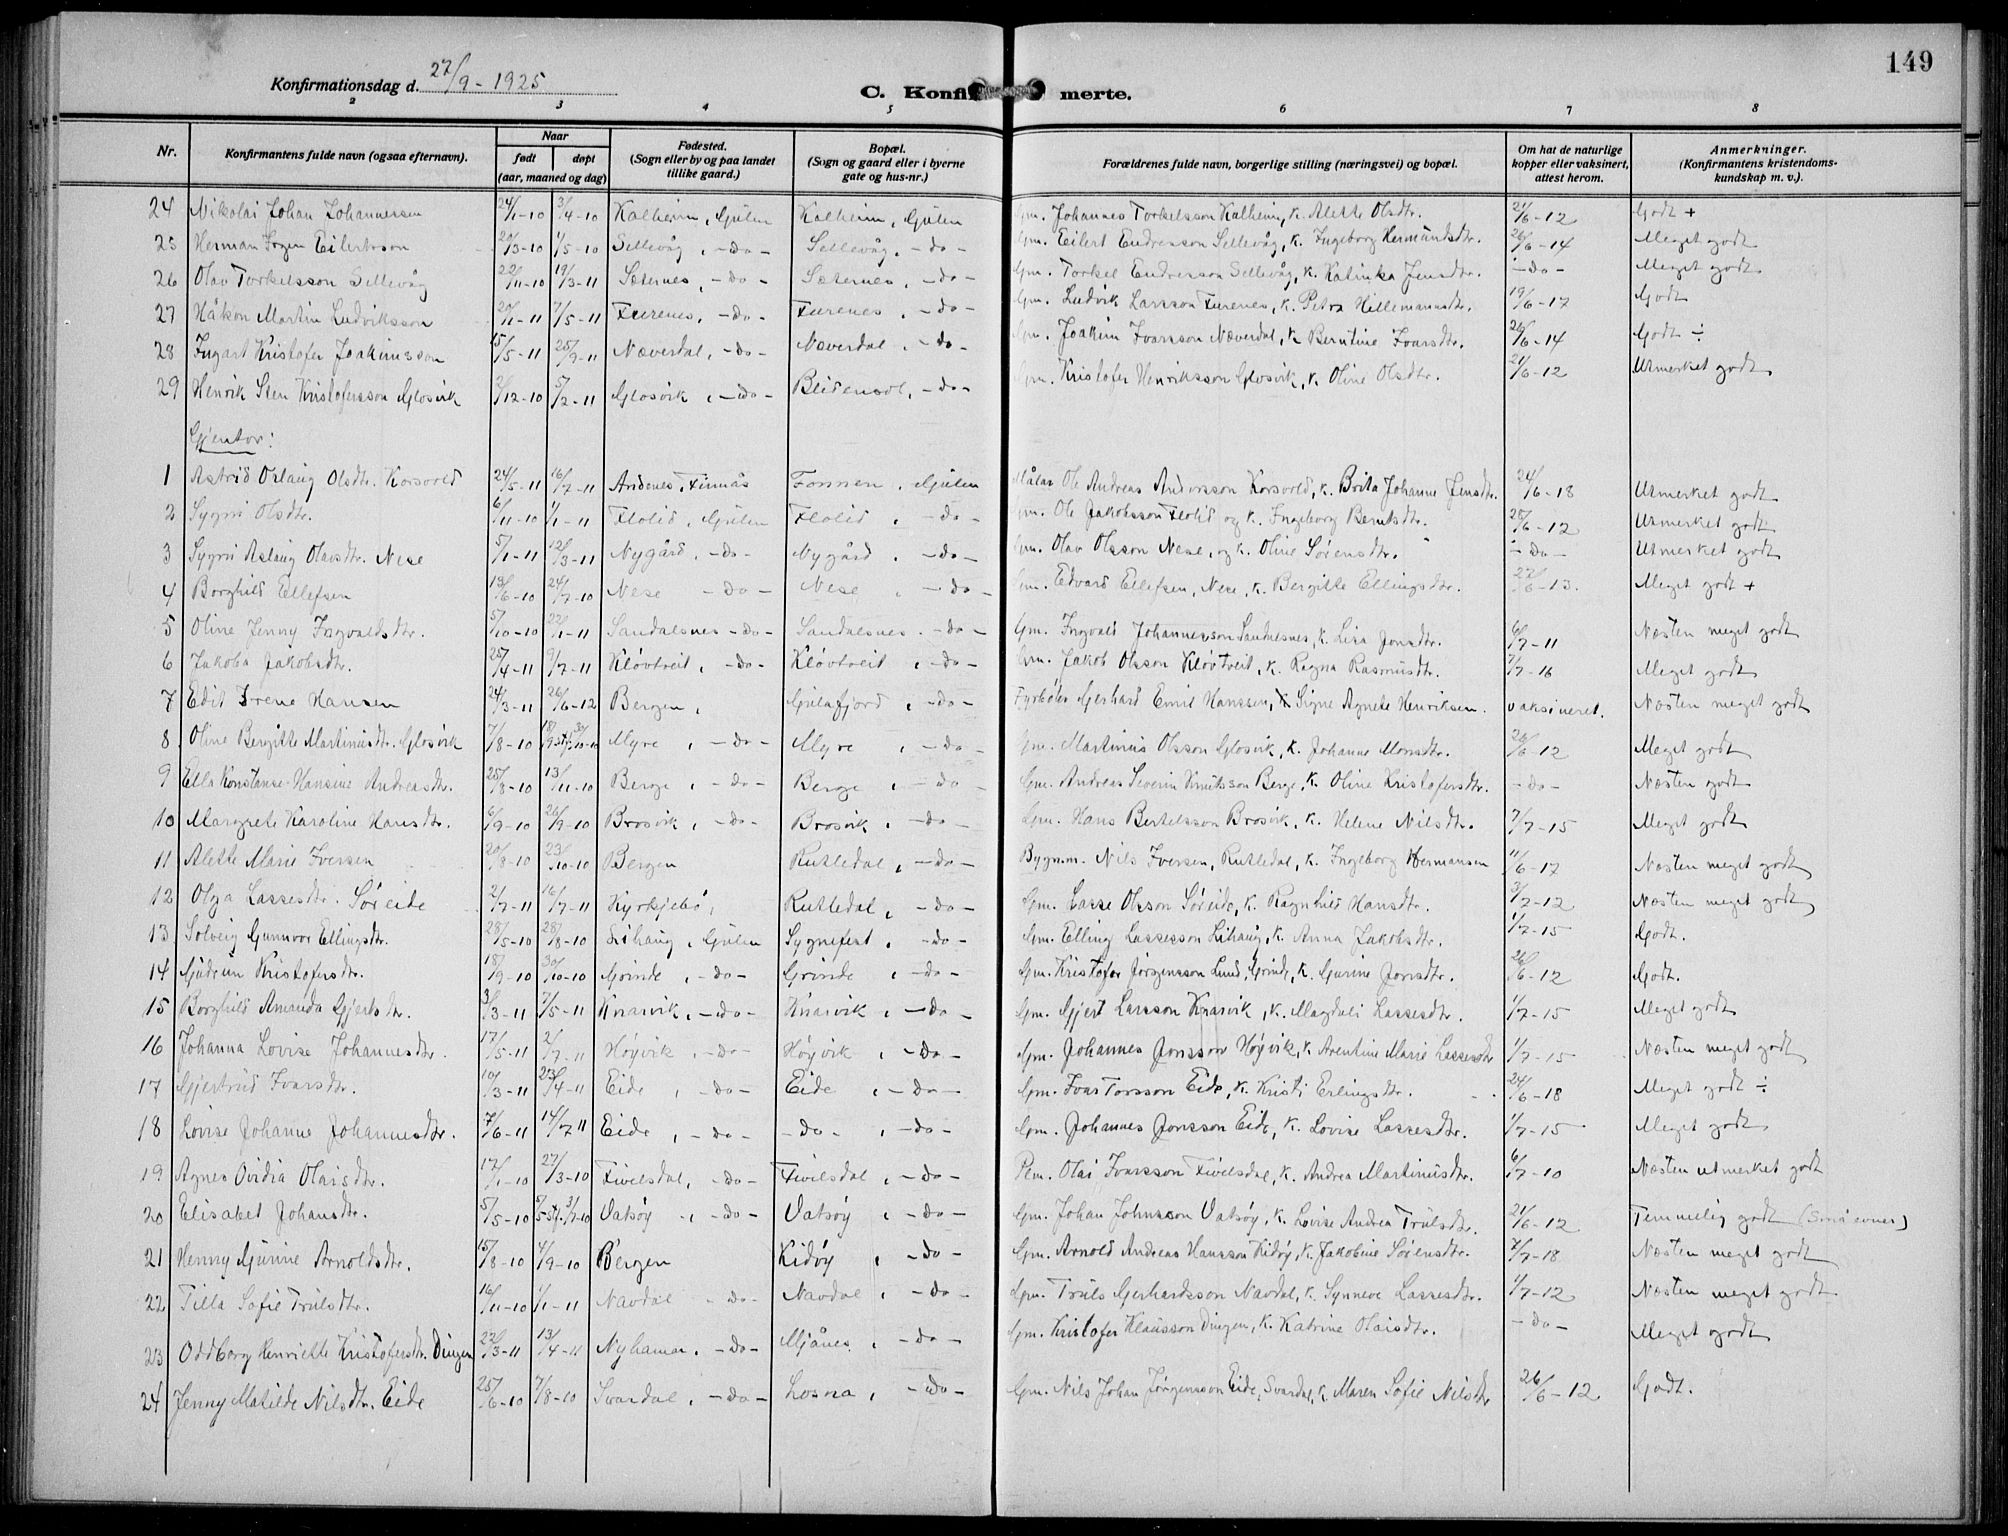 149
Konfirmationsdag d. 27/9 - 1925
C. Konfirmerte.
2 3 4 5 6 7 8
Nr. Konfirmantens fulde navn (ogsaa efternavn). Naar født døpt (aar, maaned og dag) Fødested. (Sogn eller by og paa landet tillike gaard.) Bopæl. (Sogn og gaard eller i byerne gate og hus-nr.) Forældrenes fulde navn, borgerlige stilling (næringsvei) og bopæl. Om hat de naturlige kopper eller vaksinert, attest herom. Anmerkninger. (Konfirmantens kristendoms-kundskap m. v.).
24 Nikolai Johan Johannessen 24/1-10 3/4-10 Kalheim, Gulen Kalheim, Gulen Gm. Johannes Torkelsson Kalheim, k. Alette Olsdtr. 21/6-12 Godt +
25 Herman Eilertsson 20/3-10 1/5-10 Sellevåg, -do- Sellevåg, -do- Gm. Eilert Endresson Sellevåg, k. Ingeborg Hermundsdtr. 26/6-14 Meget godt
26 Olav Torkelsson Sellevåg 22/11-10 19/3-11 Sæternes, -do- Sæternes, -do- Gm. Torkel Endresson Sellevåg, k. Katinka Jensdtr. -do- Meget godt
27 Håkon Martin Ludviksson 20/1-11 7/5-11 Furenes, -do- Furenes, -do- Gm. Ludvik Larsson Furenes, k. Petra Hillemannsdtr. 19/6-17 Godt
28 Ingart Kristofer Joakimsson 15/5-11 25/9-11 Næverdal, -do- Næverdal, -do- Gm. Joakim Ivarsson Næverdal, k. Berntine Ivarsdtr. 26/6-14 Godt ÷
29 Henrik Sten Kristofersson Glosvik 2/12-10 5/2-11 Glosvik, -do- Blidensol, -do- Gm. Kristofer Henriksson Glosvik, k. Oline Olsdtr. 21/6-12 Utmerket godt
Gjentor:
1 Astrid Oslaug Olsdtr. Korsvold 24/5-11 16/7-11 Andenes, Finnås Fonnen, Gulen Målar Ole Andreas Andersson Korsvold, k. Brita Johanne Jensdtr. 24/6-18 Utmerket godt
2 Sygni Olsdtr. 6/11-10 1/1-11 Flolid, Gulen Flolid, -do- Gm. Ole Jakobsson Flolid og k. Ingeborg Berntsdtr. 25/6-12 Utmerket godt
3 Sygni Aslaug Olavsdtr. Nese 5/1-11 12/3-11 Nygård, -do- Nygård, -do- Gm. Olav Olsson Nese, og k. Oline Sørensdtr. -do- Utmerket godt
4 Borghild Ellefsen 13/6-10 24/7-10 Nese -do- Nese, -do- Gm. Edvard Ellefsen, Nese, k. Bergitte Ellingsdtr. 27/6-13. Meget godt +
5 Oline Jenny Ingvaldsdtr. 5/10-10 22/1-11 Sandalsnes -do- Sandalsnes. -do- Gm. Ingvald Johannesson Sandalsnes, k. Lisa Jonsdtr. 6/7-11 Næsten meget godt
6 Jakoba Jakobsdtr. 25/4-11 9/7-11 Kløvtveit, -do- Kløvtveit, -do- Gm. Jakob Olsson Kløvtveit, k. Ragna Rasmusdtr. 7/7-16 Meget godt
7 Edit Irene Hansen 24/3-11 26/6-12 Bergen, Gulafjord, -do- Fyrbøter Gerhard Emil Hanssen, k. Signe Agnete Henriksen. vaksineret. Næsten meget godt
8 Oline Bergitte Martinusdtr. Glosvik 7/8-10 18/9 st. 30/10-10 Myre, -do- Myre, -do- Gm. Martinus Olsson Glosvik, k. Johanne Monsdtr. 26/6-12 Meget godt
9 Ella Konstanse Hansine Andreasdtr. 25/8-10 13/11-10 Berge, -do- Berge, -do- Gm. Andreas Severin Knutsson Berge, k. Oline Kristofersdtr. -do- Næsten godt
10 Margrete Karoline Hansdtr. 6/9-10 26/9-10 Brosvik, -do- Brosvik, -do- Gm. Hans Bertelsson Brosvik, k. Helene Nilsdtr. 7/7-15 Meget godt
11 Alette Marie Iversen 20/8-10 23/10-10 Bergen Rutledal, -do- Bygnm. Nils Iversen, Rutledal, k. Ingeborg Hermansen 11/6-17 Næsten meget godt
12 Olga Lassesdtr. Søreide 2/7-11 16/7-11 Kyrkjebø, Rutledal, -do- Gm. Lasse Olsson Søreide, k. Ragnhild Hansdtr. 3/7-12 Næsten meget godt
13 Solveig Gunnvor Ellingsdtr. 28/5-10 28/8-10 Lihaug, Gulen Sygnefest, -do- Gm. Elling Lassesson Lihaug, k. Anna Jakobsdtr. 1/7-15 Godt.
14 Gudrun Kristofersdtr. 18/9-10 30/10-10 Grinde, -do- Grinde, -do- Gm. Kristofer Jørgensson Lund, Grinde, k. Gurine Jonsdtr. 26/6-12 Godt.
15 Borghild Amanda Gjertsdtr. 3/3-11 7/5-11 Knarvik, -do- Knarvik, -do- Gm. Gjert Larsson Knarvik, k. Magdeli Lassesdtr. 1/7-15 Meget godt
16 Johanna Lovise Johannesdtr. 17/5-11 2/7-11 Høyvik, -do- Høyvik, -do- Gm. Johannes Jonsson Høyvik, k. Arentine Marie Lassesdtr 1/7-15 Næsten meget godt
17 Gjertrud Ivarsdtr. 10/3-11 23/4-11 Eide, -do- Eide, -do- Gm. Ivar Torsson Eide, k. Kristi Erlingsdtr. 24/6-18 Meget godt ÷
18 Lovise Johanne Johannesdtr. 7/6-11 14/7 11 Eide, -do- -do-, -do- Gm. Johannes Jonsson Eide, k. Lovise Lassesdtr. 1/7-15 Meget godt
19 Agnes Ovidia Olaisdtr. 17/1-10 27/3-10 Fivilsdal, -do- Fivilsdal, -do- Plm. Olai Ivarsson Fivilsdal, k. Andrea Martinusdtr. 6/7-10 Næsten utmerket godt
20 Elisabet Johansdtr. 5/5-10 5/5 st. 3/7-10 Vatsøy, -do- Vatsøy, -do- Gm. Johan Johnsson Vatsøy, k. Lovise Andrea Trulsdtr. 21/6-12 Temmelig godt (Små evner)
21 Henny Gurine Arnoldsdtr. 15/8-10 4/9-10 Bergen Kidøy, -do- Gm. Arnold Andreas Hansson Kidøy, k. Jakobine Sørensdtr. 7/7-18 Næsten meget godt
22 Tilla Sofie Trulsdtr. 16/11-10 1/1-11 Navdal -do- Navdal, -do- Gm. Truls Gerhardsson Navdal, k. Synneve Lassesdtr. 1/7-12 Næsten meget godt
23 Oddborg Henriette Kristofersdtr. Dingen 22/3-11 13/4-11 Nyhamar, -do- Mjånes, -do- Gm. Kristofer Klausson Dingen, k. Katrine Olaisdtr. -do- Meget godt
24 Jenny Matilde Nilsdtr. Eide 25/6-10 7/8-10 Svardal, -do- Losna, -do- Gm. Nils Johan Jørgensson Eide, Svardal, k. Maren Sofie Nilsdtr 26/6-12 Godt.